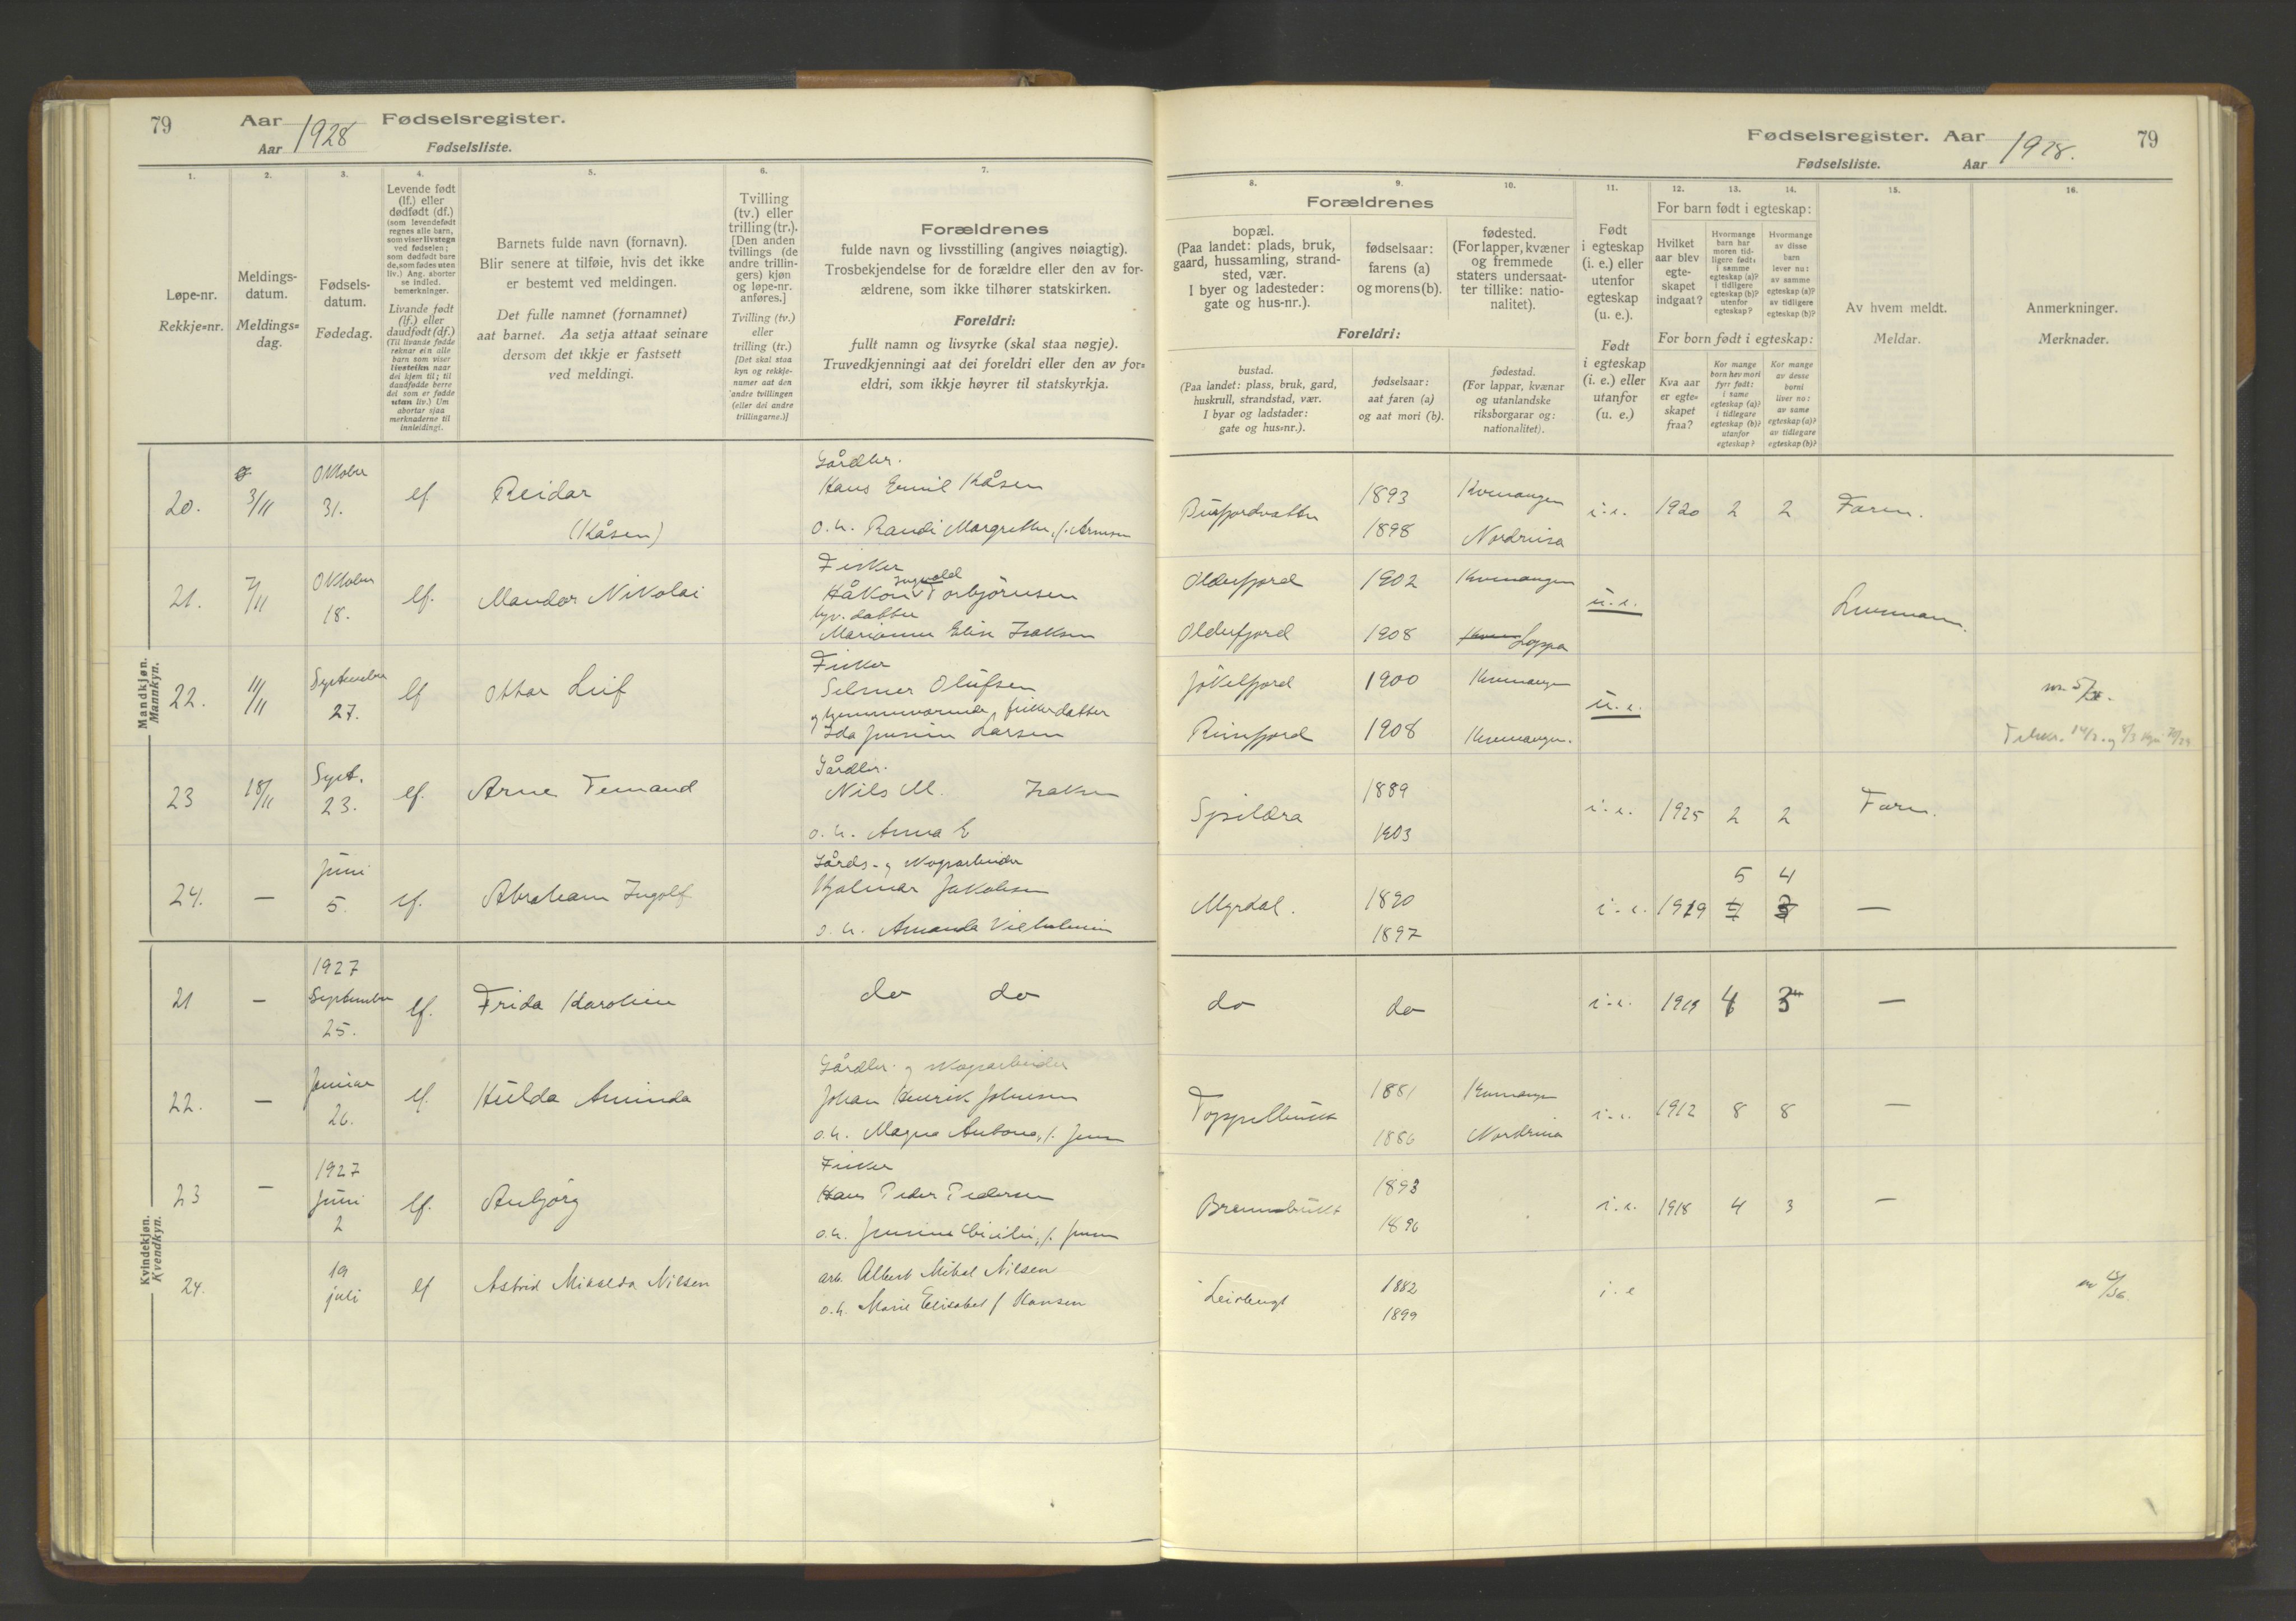 79
Aar 1928
Fødselsregister.
Aar
Fødselsliste.
1.
2.
3.
4.
5.
6.
7.
Løpe-nr.
Rekkje-nr.
Meldings-
datum.
Meldings-
dag.
Fødsels-
datum.
Fødedag.
Levende født
(lf.) eller
dødfødt (df.)
(som levendefødt
regnes alle barn,
som viser livstegn
ved fødselen;
som dødfødt bare
de, som fødes uten
liv.) Ang. aborter
se indled.
bemerkninger.
Livande født
(lf.) eller
daudfødt (df.)
(Til livande fødde
reknar ein alle
barn som viser
livsteikn naar
dei kjem til; til
daudfødde berre
dei som er fødde
utan liv.) Um
abortar sjaa
merknaderne til
innleidingi.
Barnets fulde navn (fornavn).
Blir senere at tilføie, hvis det ikke
er bestemt ved meldingen.
Det fulle namnet (fornamnet)
aat barnet. Aa setja attaat seinare
dersom det ikkje er fastsett
ved meldingi.
Tvilling
(tv.) eller
trilling (tr.).
[Den anden
tvillings (de
andre trillin-
gers) kjøn
og løpe-nr.
anføres.]
Tvilling (tv.)
eller
trilling (tr.)
[Det skal staa
kyn og rekkje-
numer aat den
andre tvillingen
(eller dei andre
trillingarne.)]
Forældrenes
fulde navn og livsstilling (angives nøiagtig).
Trosbekjendelse for de forældre eller den av for-
ældrene, som ikke tilhører statskirken.
Foreldri:
fullt namn og livsyrke (skal staa nøgje).
Truvedkjenningi aat dei foreldri eller den av for-
eldri, som ikkje høyrer til statskyrkja.
Fødselsregister. Aar 1928.
79
Fødselsliste.
Aar
8.
9.
10.
11.
12.
13.
14.
15.
16.
Forældrenes
bopæl.
(Paa landet: plads, bruk,
gaard, hussamling, strand-
sted, vær.
I byer og ladesteder:
gate og hus-nr.).
fødselsaar:
farens (a)
og morens (b).
fødested.
(For lapper, kvæner
og fremmede
staters undersaat-
ter tillike: natio-
nalitet).
Foreldri:
bustad.
(Paa landet: plass, bruk, gard,
huskrull, strandstad, vær.
I byar og ladstader:
gate og hus-nr.).
fødselsaar:
aat faren (a)
og aat mori (b).
fødestad.
(For lappar, kvænar
og utanlandske
riksborgarar og:
nationalitet).
Født
i egteskap
(i. e.) eller
utenfor
egteskap
(u. e.).
Født
i egteskap
(i. e.) eller
utanfor
(u. e.)
For barn født i egteskap:
Hvilket
aar blev
egte-
skapet
indgaat?
Hvormange
barn har
moren tid-
ligere født:
i samme
egteskap (a)?
i tidligere
egteskap (b)?
utenfor
egteskap?
Hvormange
av disse
barn
lever nu:
av samme
egteskap (a)?
av tidligere
egteskap (b)?
For born født i egteskap:
Kva aar
er egte-
skapet
fraa?
Kor mange
born hev mori
fyrr født:
i same
egteskap (a)?
i tidlegare
egteskap (b)?
utanfor
egteskap?
Kor mange
av desse
borni
liver no:
av same
egteskap (a)?
av tidlegare
egteskap (b)?
Av hvem meldt.
Meldar.
Anmerkninger.
Merknader.
Mandkjøn.
Mankyn.
20. 3/11 Oktober 31. lf Reidar (Kåsen)
Gårdbr.
Hans Emil Kåsen
o. h. Randi Margrethe, f. Arnesen
Burfjordvatten 1893 Kvænangen i. e. 1920 2 2 Faren.
1898 Nordreisa
21. 7/11 Oktober 18. lf. Mandor Nikolai
Fisker
Ingvald
Håkon Torbjørnsen
Marianne Elise Isaksen
Olderfjord 1902 Kvænangen u. e. Lensmann.
Olderfjord 1908 Loppa
22. 11/11 September 27. lf Ottar Leif
Fisker
Selmer Olufsen
og hjemmeværende fiskerdatter
Ida Jensine Larsen
Jøkelfjord 1900 Kvænangen u. e.
Reinfjord 1908 Kvænangen.
23 18/11 Sept. 23. lf. Arne Fernand
Gårdbr.
Nils M. Isaksen
o. h. Anna E
Spildra 1889 i. e. 1925 2 2 Faren.
1903
24. — Juni 5. lf. Abraham Ingolf
Gårds- og skogsarbeider
Hjalmar Jakobsen
o. h. Amanda Vilhelmine
Myrdal. 1890 i. e. 1919 5 4 —
1897
Kvindekjøn.
Kvendkyn.
21 — 1927 September 25. lf. Frida Karoline
do do
do do i. e. 1919 4 3 —
22. — Januar 26. lf. Hulda Aminda
Gårdbr. og skogsarbeider
Johan Henrik Johnsen
o. h. Magna Antona, f. Jensen
Toppelbukt 1881 Kvænangen i. e. 1912 8 8 —
1886 Nordreisa
23 — 1927 Juni 2 lf. Anbjörg
Fisker
Hans Peder Pedersen
o. h. Jensine Cecilie, f. Jensen
Brennsbukt 1893 i. e. 1918 4 3 —
1896
24. 19 juli lf Astrid Mikalda Nilsen
arb. Albert Mikal Nilsen
o. h. Marie Elisabet f Hansen
Leirbugt 1882 i. e
1899